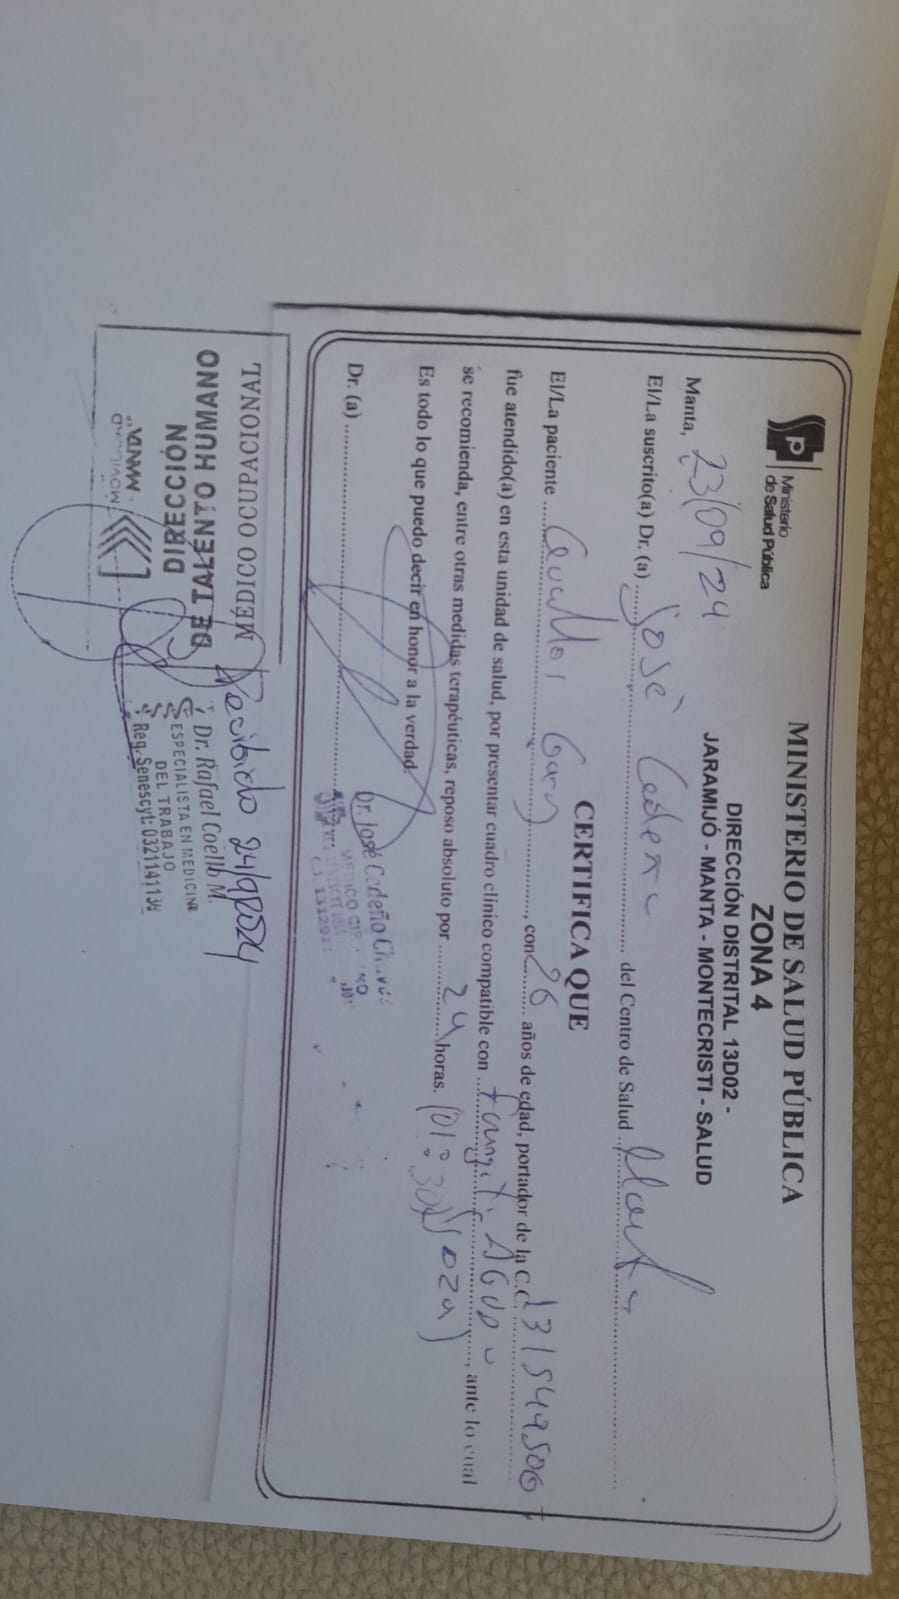 Ministerio
de Salud Pública
MINISTERIO DE SALUD PÚBLICA
ZONA 4
DIRECCIÓN DISTRITAL 13D02 -
JARAMIJÓ - MANTA - MONTECRISTI - SALUD
Manta, 23/09/24
El/La suscrito(a) Dr. (a) José Cedeño del Centro de Salud Manta
CERTIFICA QUE
El/La paciente Gary, con 26 años de edad, portador de la C.C.
fue atendido(a) en esta unidad de salud, por presentar cuadro clínico compatible con, ante lo cual
se recomienda, entre otras medidas terapéuticas, reposo absoluto por 24 horas.
Es todo lo que puedo decir en honor a la verdad.
Dr. (a)
Dr. José Cedeño
MÉDICO
MÉDICO OCUPACIONAL
DE TALENTO HUMANO
DIRECCIÓN
MANTA
Recibido 24/9/2024
Dr. Rafael Coello M.
ESPECIALISTA EN MEDICINA
DEL TRABAJO
Reg. Senescyt: